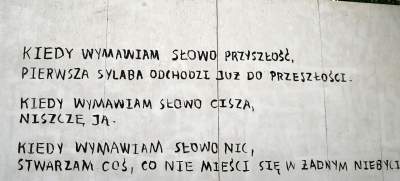 KIEDY WYMAWIAM SŁOWO PRZYSZŁOŚĆ,
PIERWSZA SYLABA ODCHODZI JUŻ DO PRZESZŁOŚCI.
KIEDY WYMAWIAM SŁOWO CISZA,
NISZCZĘ JĄ.
KIEDY WYMAWIAM SŁOWO NIC,
STWARZAM COŚ, CO NIE MIEŚCI SIĘ W ŻADNYM NIEBYCI